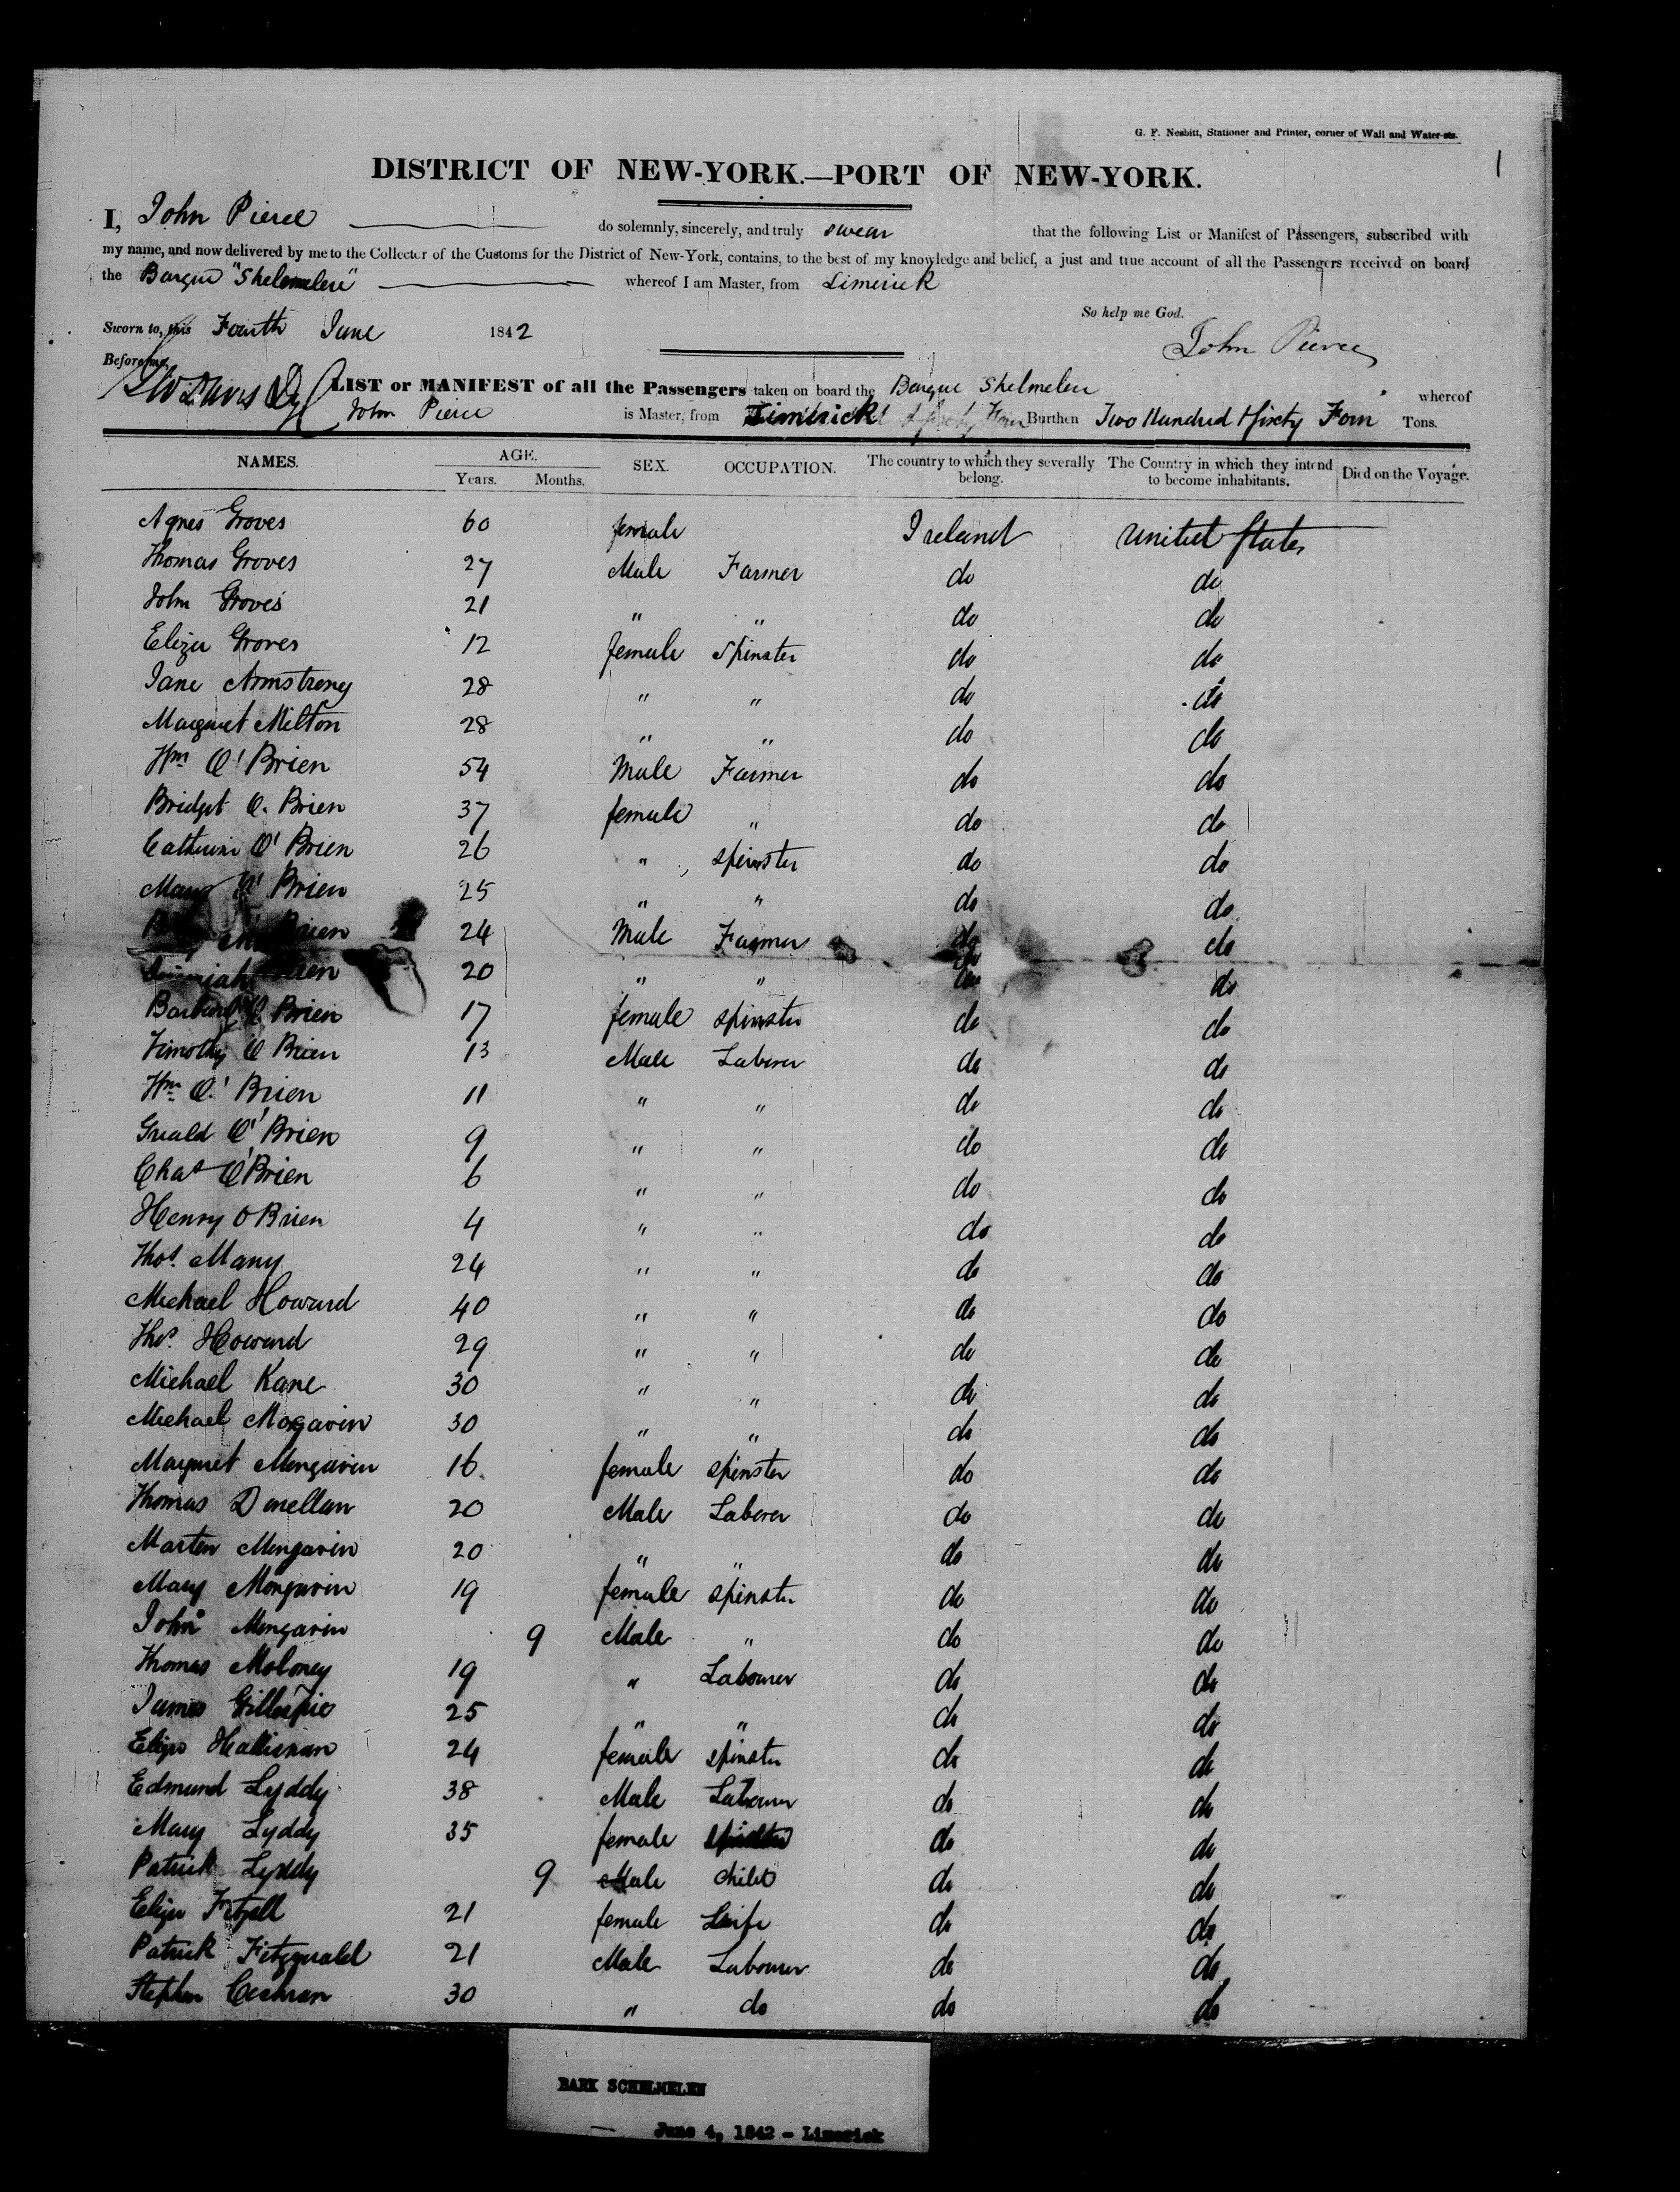 G. F. Nesbitt, Stationer and Printer, corner of Wall and Water-sts.
1
DISTRICT OF NEW-YORK.—PORT OF NEW-YORK.
I, John Pierce do solemnly, sincerely, and truly swear that the following List or Manifest of Passengers, subscribed with
my name, and now delivered by me to the Collector of the Customs for the District of New-York, contains, to the best of my knowledge and belief, a just and true account of all the Passengers received on board
the Barque "Shelmelere" whereof I am Master, from Limerick
So help me God.
Sworn to, this Fourth June 1842
John Pierce
Before me,
LIST or MANIFEST of all the Passengers taken on board the Barque Shelmelere whereof
John Pierce is Master, from Limerick Burthen Two Hundred & sixty Four Tons.
NAMES. AGE. SEX. OCCUPATION. The country to which they severally belong. The Country in which they intend to become inhabitants. Died on the Voyage.
Years. Months.
Agnes Groves 60 female Ireland United States
Thomas Groves 27 Male Farmer do do
John Groves 21 " " do do
Eliza Groves 12 female Spinster do do
Jane Armstrong 28 " " do do
Margaret Milton 28 " " do do
Wm O'Brien 54 Male Farmer do do
Bridget O. Brien 37 female " do do
Catherine O'Brien 26 " spinster do do
Mary O'Brien 25 " " do do
Brien 24 Male Farmer do do
Brien 20 " " do do
Barbara O'Brien 17 female spinster do do
Timothy O Brien 13 Male Laborer do do
Wm O'Brien 11 " " do do
Gerald O'Brien 9 " " do do
Chas O'Brien 6 " " do do
Henry O Brien 4 " " do do
Thos. Many 24 " " do do
Michael Howard 40 " " do do
Thos. Howard 29 " " do do
Michael Kane 30 " " do do
Michael Mogavin 30 " " do do
Margaret Mongavin 16 female spinster do do
Thomas Donellan 20 Male Laborer do do
Marten Mongavin 20 " " do do
Mary Mongavin 19 female spinster do do
John Mongavin 9 Male " do do
Thomas Moloney 19 " Labourer do do
James Gillespie 25 " " do do
Eliza Hallinan 24 female spinster do do
Edmund Lyddy 38 Male Labourer do do
Mary Lyddy 35 female spinster do do
Patrick Lyddy 9 Male child do do
Eliza Fitzell 21 female do do
Patrick Fitzgerald 21 Male Labourer do do
Stephen Cochran 30 " do do do
BARK SCHELMELEN
— June 4, 1842 - Limerick